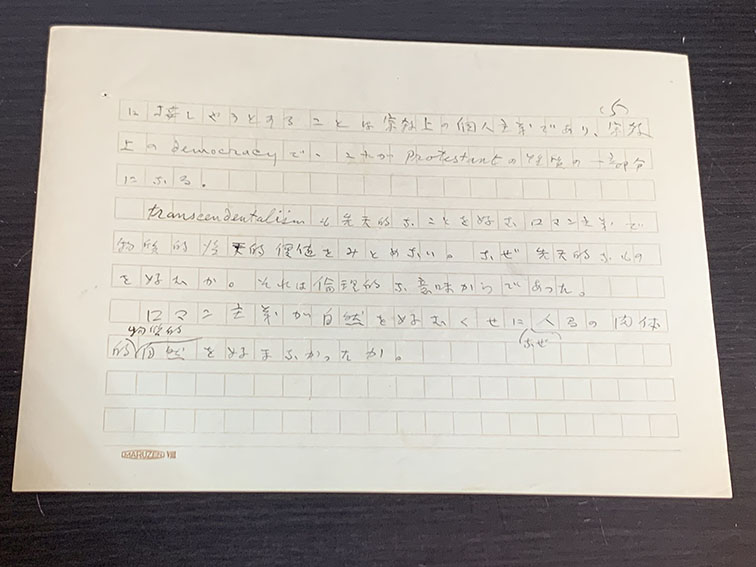 (5)
に接しやうとすることは宗教上の個人主義であり、宗教
上のdemocracyで、これがProtestantの性質の一部分
になる。
transcendentalismも先天的なことを好むロマン主義で
物質的後天的価値をみとめない。なぜ先天的なもの
を好むか。それは倫理的な意味からであった。
ロマン主義が自然を好むくせに人間の肉体
物質的 なぜ
的自然を好まなかったか。
MARUZEN VIII